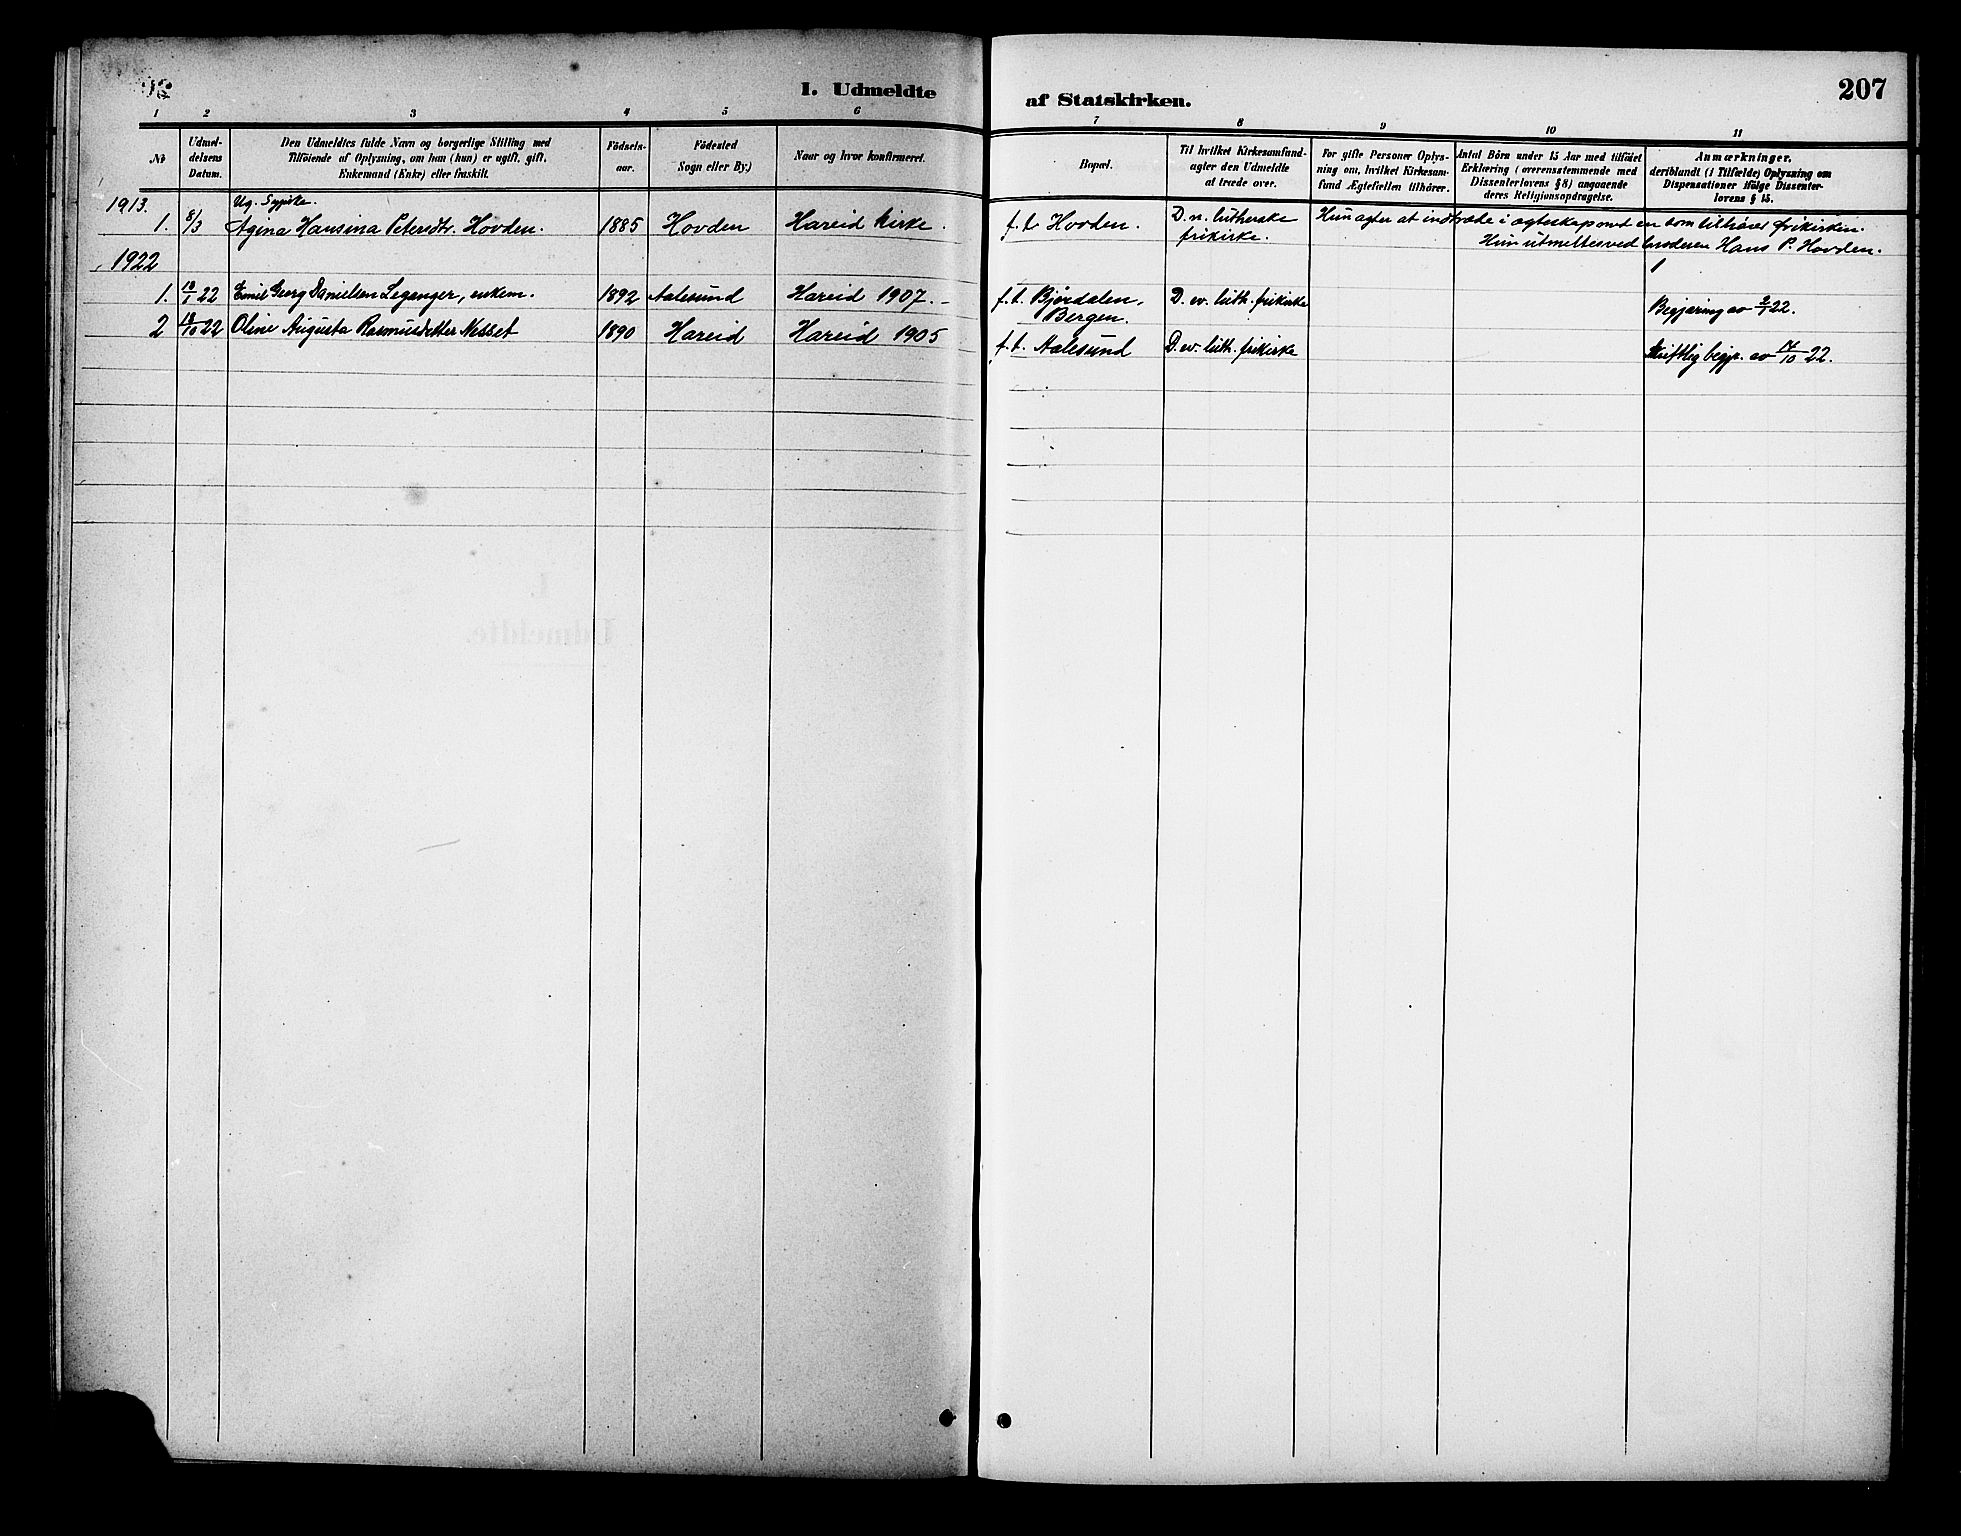 I. Udmeldte
1 2 3 4 5 6
No
Udmel-
delsens
Datum.
Den Udmeldtes fulde Navn og borgerlige Stilling med
Tilföiende af Oplysning, om han (hun) er ugift, gift,
Enkemand (Enke) eller fraskilt.
Födsels-
aar.
Födested
(Sogn eller By.)
Naar og hvor konfirmeret.
1913.
Ug. Sypike.
1. 8/3 Agina Hansina Petersdtr. Hovden. 1885 Hovden Hareid kirke.
1922
1. 18/1 22 Emil Georg Danielsen Leganger, enkem. 1892 Aalesund Hareid 1907.-
2 18/10 22 Oline Augusta Rasmusdatter Nesset 1890 Hareid Hareid 1905
I.
Udmeldte.
af Statskirken.
207
7 8 9 10 11
Bopæl.
Til hvilket Kirkesamfund-
agter den Udmeldte
at træde over.
For gifte Personer Oplys-
ning om, hvilket Kirkesam-
fund Ægtefællen tilhörer.
Antal Börn under 15 Aar med tilföiet
Erklæring (overensstemmende med
Dissenterlovens § 8) angaaende
deres Religionsopdragelse.
Anmærkninger,
deriblandt (i Tilfælde) Oplysning om
Dispensationer ifölge Dissenter-
lovens § 15.
f. t. Hovden.
D. n. lutherske
frikirke.
Hun agter at indtræde i ægteskap med en som tilhører frikirken.
Hun utmeltes ved broderen Hans P. Hovden.
f. t. Bjørdalen,
Bergen.
D. ev. luth. frikirke
Begjæring av 2/1 22.
f. t. Aalesund D. ev. luth. frikirke
Skriftlig begjr. av 14/10 22.